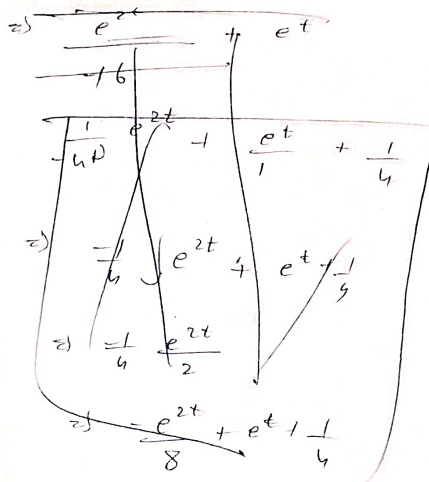 =) e^{2t} / -16 + e^t
1/-4D e^{2t} + e^t/1 + 1/4
=) -1/4 ∫ e^{2t} + e^t + 1/4
=) -1/4 e^{2t}/2
=) -e^{2t}/8 + e^t + 1/4